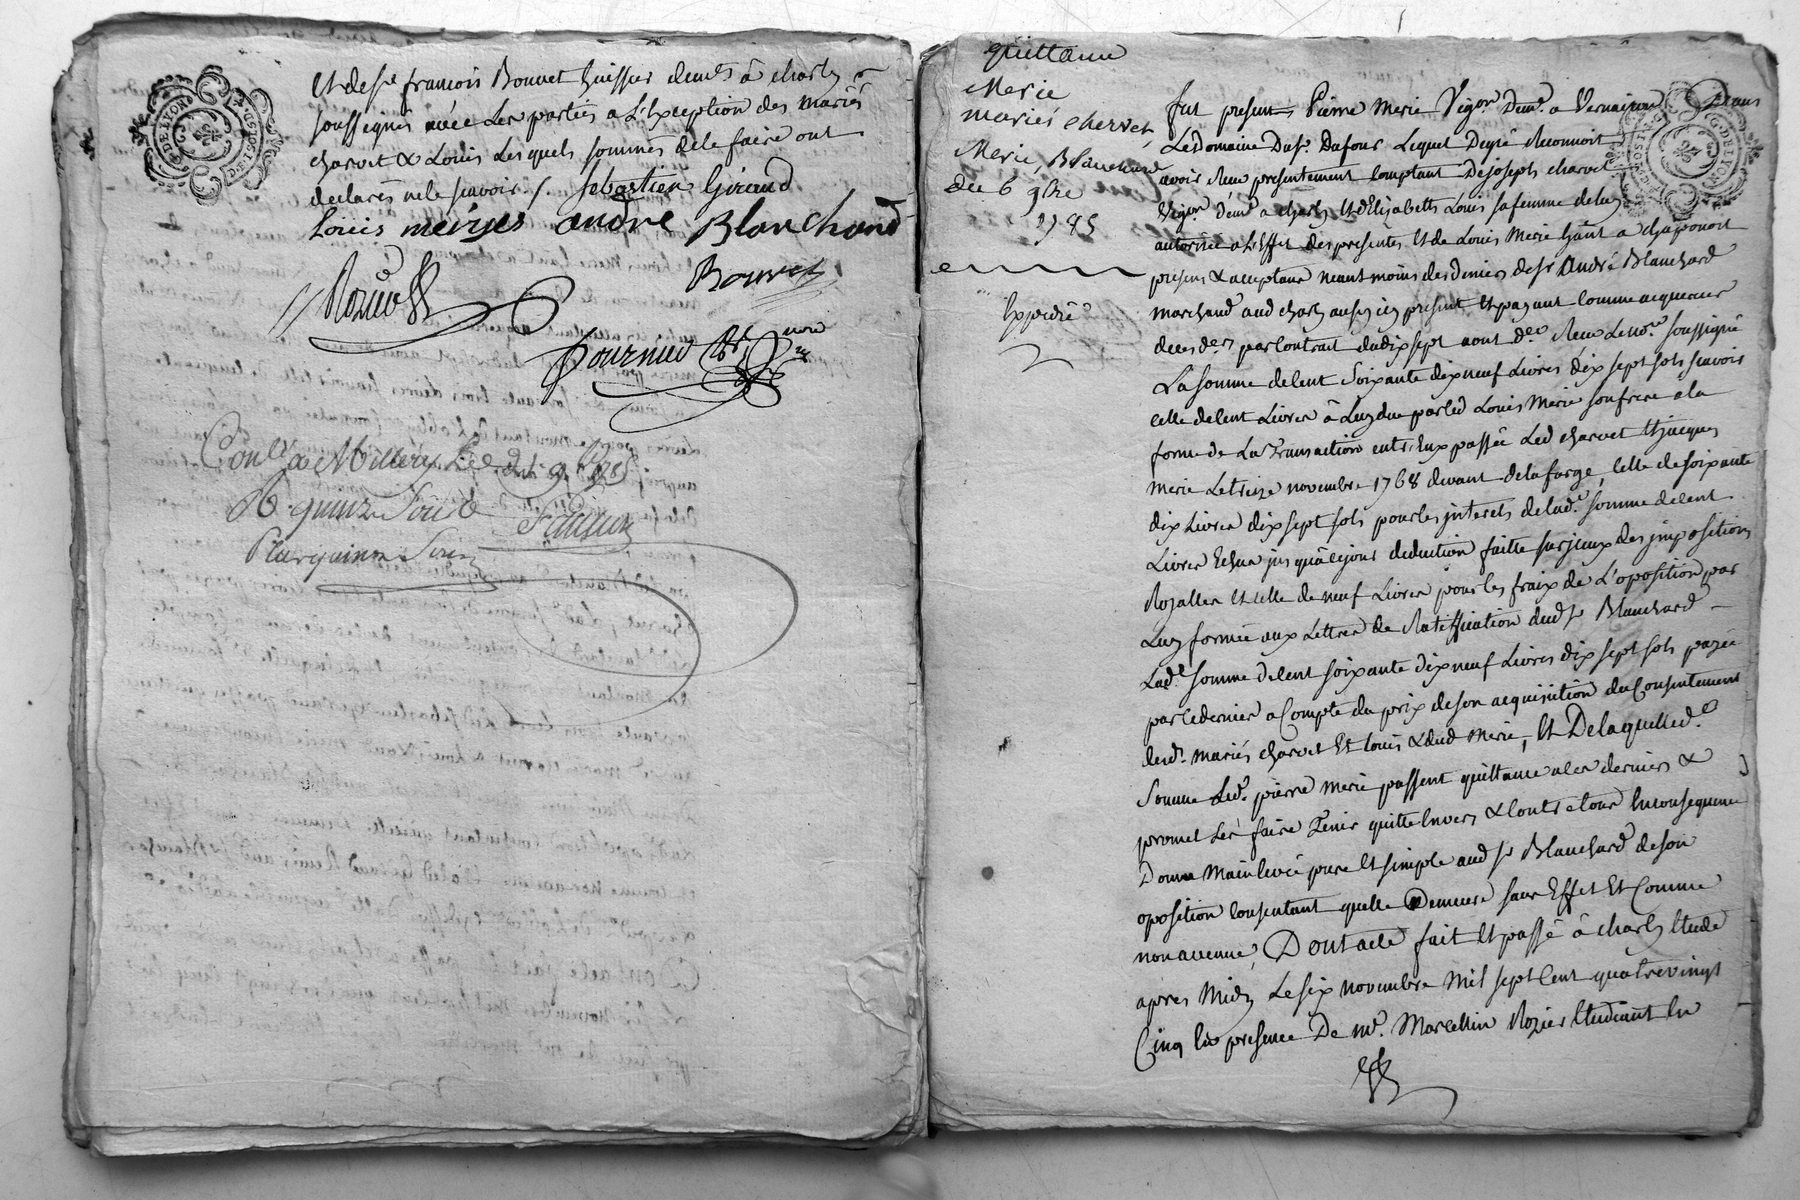 Et de sr francois Bonnet huissier demt à charly
soussignés avéc les parties a L'Exception des mariés
charvet & Louis Lesquels sommés de le faire ont
declarés ne le scavoir. / sebastien Giraud
Loüis meriés andré Blanchand
Bonnet
Rozier
fournier
Conlé a Millery Le 9. 1785
R. quinze sous
quinze sous
G. DE LYON
quittance
Merie
mariés cherver,
Merie, Blanchard
du 6 9bre
1785
Expedié
G. DE LYON
fut present Pierre Merie Vigon demt. a Vernaison Dans
Le Domaine Du sr. Dufour Lequel De gré Reconnoit
avoir Reçu presentement Comptant De joseph charvet
Vigon demt a charly Et d'Elizabeth Louis sa femme de luy
autorisée a L'Effet des presentes Et de Louis Merie habt a chaponost
present & acceptant neantmoins des deniers de sr André Blanchard
marchand aud charly aussy icy present Et payant Comme acquereur
par Contrat du dix sept aout der Reçu Le nore soussigné
La somme de Cent soixante dix neuf Livres dix sept sols scavoir
celle de Cent Livres à Luy due par led Louis Merie son frere a la
forme de La Transaction entr'Eux passée Led charvet Et jacques
Merie Le treize novembre 1768 devant delafarge, Celle de soixante
dix Livres dix sept sols pour les jnterets de lade. somme de Cent
Livres Echus jusqu'à ce jour deduction faitte sur jceux des jmpositions
Royalles Et celle de neuf Livres pour les fraix de L'oposition par
Luy formée aux Lettres de Ratiffication dud sr Blanchard
Lade somme de Cent soixante dix neuf Livres dix sept sols payée
par ce dernier a Compte du prix de son acquisition du Consentement
desd. mariés charvet Et Louis & dud Merie, Et De laquelle de
Somme Led. pierre Merie passent quittance a ces derniers &
promet Les faire Tenir quitte Envers & Contre tous En consequence
Donne Mainlevée pure Et simple aud sr Blanchard de son
oposition Consentant quelle Demeure sans Effet Et Comme
non avenue, Dont acte fait Et passé à charly Etude
apres Midy Le six novembre Mil sept Cent quatrevingt
Cinq En presence De Mr. Marcellin Rozier Etudiant En